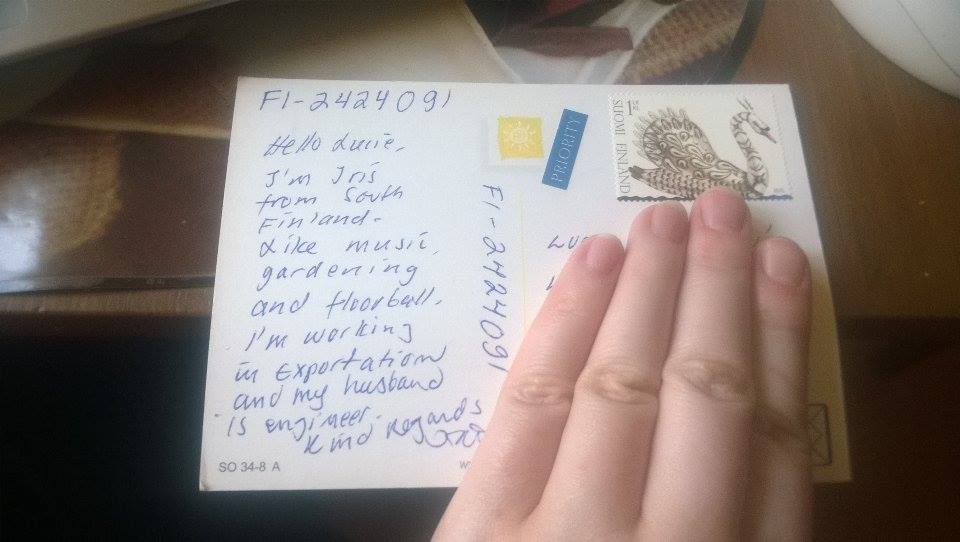 FI-2424091
Hello Lucie,
I'm Iris
from South
Finland.
Like music,
gardening
and floorball.
I'm working
in exportation
and my husband
is engineer.
Kind Regards
SO 34-8 A
FI-2424091
PRIORITY
SUOMI FINLAND